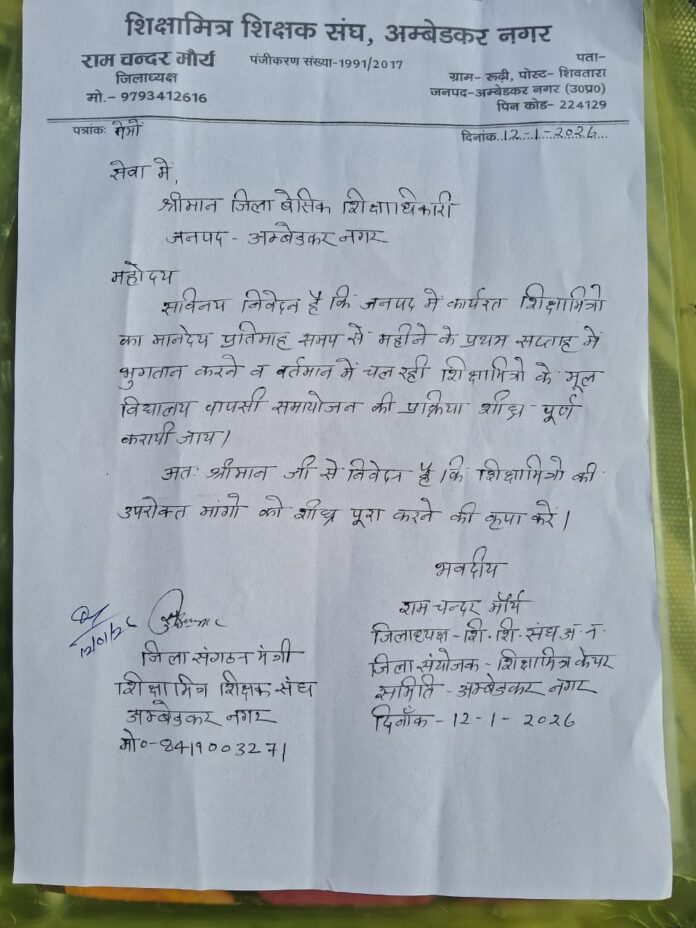 शिक्षामित्र शिक्षक संघ, अम्बेडकर नगर
राम चन्दर मौर्य
जिलाध्यक्ष
मो.- 9793412616
पंजीकरण संख्या-1991/2017
पता-
ग्राम- रूढ़ी, पोस्ट- शिवतारा
जनपद-अम्बेडकर नगर (उ0प्र0)
पिन कोड- 224129
पत्रांकः मेमो
दिनांक 12-1-2026
सेवा में,
श्रीमान जिला बेसिक शिक्षाधिकारी
जनपद - अम्बेडकर नगर
महोदय
सविनय निवेदन है कि जनपद में कार्यरत शिक्षामित्रो
का मानदेय प्रतिमाह समय से महीने के प्रथम सप्ताह में
भुगतान करने व वर्तमान में चल रही शिक्षामित्रो के मूल
विद्यालय वापसी समायोजन की प्रक्रिया शीघ्र पूर्ण
करायी जाय।
अतः श्रीमान जी से निवेदन है कि शिक्षामित्रो की
उपरोक्त मांगो को शीघ्र पूरा करने की कृपा करें।
भवदीय
राम चन्दर मौर्य
जिलाध्यक्ष - शि. शि. संघ अ. न.
जिला संयोजक - शिक्षामित्र केयर
समिति - अम्बेडकर नगर
दिनाँक - 12-1-2026
12/01/26
जिला संगठन मंत्री
शिक्षामित्र शिक्षक संघ
अम्बेडकर नगर
मो०-8419003271